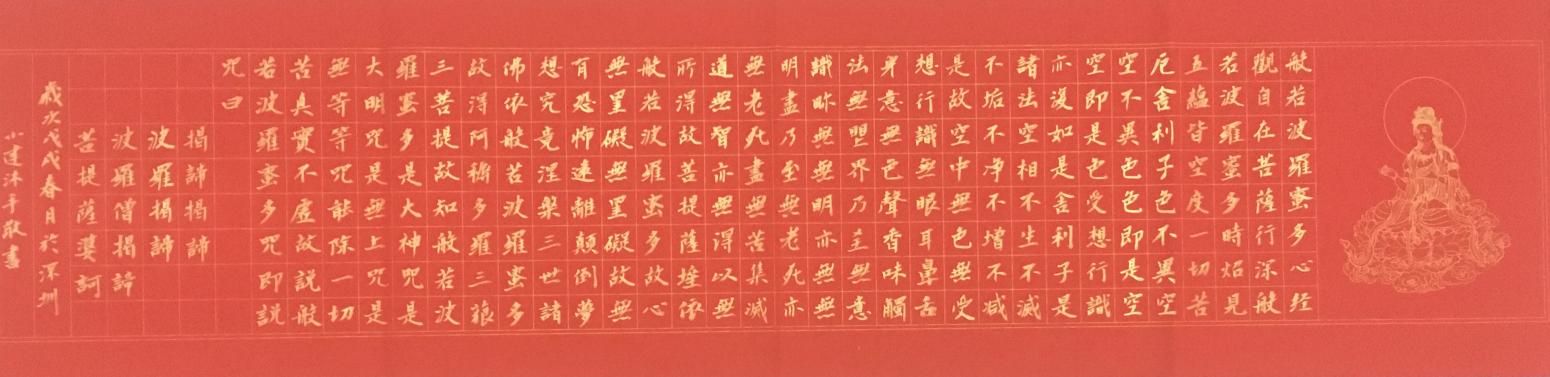 般若波羅蜜多心经
觀自在菩薩行深般
若波羅蜜多時炤見
五蘊皆空度一切苦
厄舍利子色不異空
空不異色色即是空
空即是色受想行識
亦復如是舍利子是
諸法空相不生不滅
不垢不净不增不减
是故空中無色無受
想行識無眼耳鼻舌
身意無色聲香味觸
法無眼界乃至無意
識界無無明亦無無
明盡乃至無老死亦
無老死盡無苦集滅
道無智亦無得以無
所得故菩提薩埵依
般若波羅蜜多故心
無罣礙無罣礙故無
有恐怖遠離顛倒夢
想究竟涅槃三世諸
佛依般若波羅蜜多
故得阿耨多羅三藐
三菩提故知般若波
羅蜜多是大神咒是
大明咒是無上咒是
無等等咒能除一切
苦真實不虛故説般
若波羅蜜多咒即説
咒曰
揭諦揭諦
波羅揭諦
波羅僧揭諦
菩提薩婆訶
歲次戊戌春月於深圳
小建沐手敬書